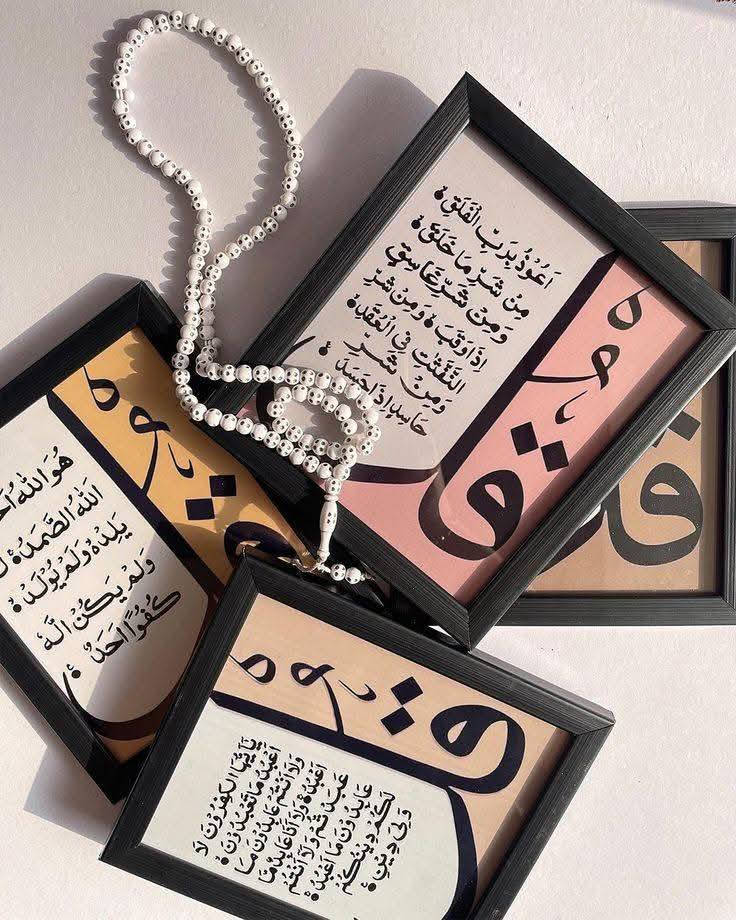 اَعُوْذُ بِرَبِّ الْفَلَقِ
مِنْ شَرِّ مَا خَلَقَ
وَمِنْ شَرِّ غَاسِقٍ
اِذَا وَقَبَ وَمِنْ شَرِّ
النَّفّٰثٰتِ فِي الْعُقَدِ
وَمِنْ شَرِّ
حَاسِدٍ اِذَا حَسَدَ
قل
قل
هُوَ اللهُ
اَللهُ الصَّمَدُ
يَلِدْ وَلَمْ يُوْلَدْ
وَلَمْ يَكُنْ لَّهٗ
كُفُوًا اَحَدٌ
قل
قل
يٰاَيُّهَا الْكٰفِرُوْنَ لَا
اَعْبُدُ مَا تَعْبُدُوْنَ
وَلَا اَنْتُمْ عَابِدُوْنَ مَا
اَعْبُدُ وَلَا اَنَا عَابِدٌ مَّا
عَبَدْتُّمْ وَلَا اَنْتُمْ
عَابِدُوْنَ مَا اَعْبُدُ
لَكُمْ دِيْنُكُمْ
وَلِيَ دِيْنِ